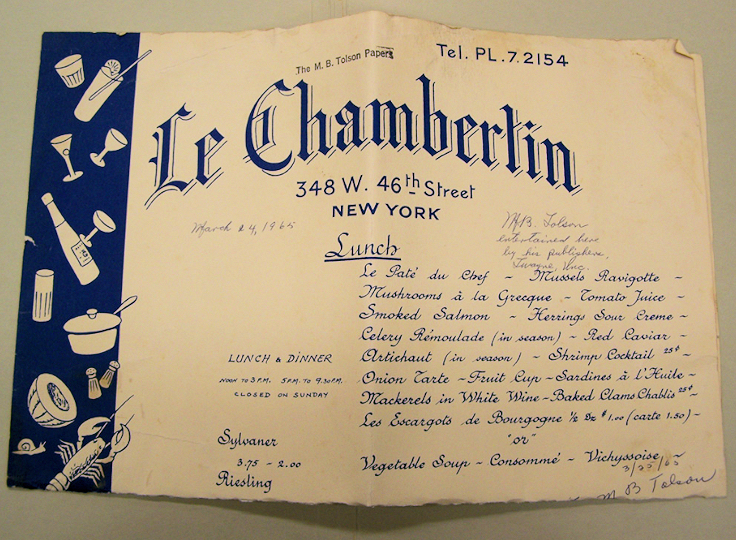 The M. B. Tolson Papers
Tel. PL.7.2154
Le Chambertin
348 W. 46th Street
NEW YORK
March 24, 1965
M.B. Tolson
entertained here
by his publishers,
Twayne, Inc.
Lunch
Le Paté du Chef ~ Mussels Ravigotte ~
Mushrooms à la Grecque ~ Tomato Juice ~
Smoked Salmon ~ Herrings Sour Creme ~
Celery Rémoulade (in season) ~ Red Caviar ~
Artichaut (in season) ~ Shrimp Cocktail 25¢ ~
Onion Tarte ~ Fruit Cup ~ Sardines à l'Huile ~
Mackerels in White Wine ~ Baked Clams Chablis 25¢ ~
Les Escargots de Bourgogne 1/2 Dz $1.00 (carte 1.50) ~
"or"
Vegetable Soup ~ Consommé ~ Vichyssoise ~
LUNCH & DINNER
NOON TO 3 P.M. 5 P.M. TO 9.30 P.M.
CLOSED ON SUNDAY
Sylvaner
3.75 - 2.00
Riesling
M B Tolson